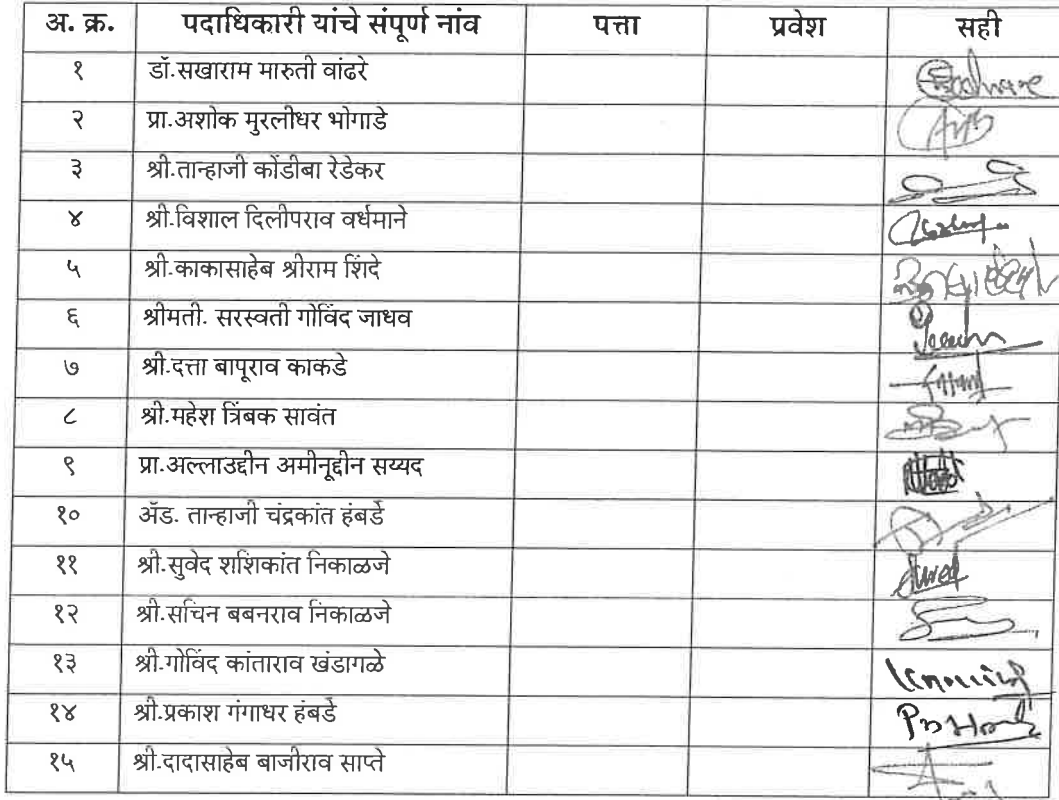 अ. क्र. पदाधिकारी यांचे संपूर्ण नांव पत्ता प्रवेश सही
१ डॉ.सखाराम मारुती वांढरे
२ प्रा.अशोक मुरलीधर भोगाडे
३ श्री.तान्हाजी कोंडीबा रेडेकर
४ श्री.विशाल दिलीपराव वर्धमाने
५ श्री.काकासाहेब श्रीराम शिंदे
६ श्रीमती. सरस्वती गोविंद जाधव
७ श्री.दत्ता बापूराव काकडे
८ श्री.महेश त्रिंबक सावंत
९ प्रा.अल्लाउद्दीन अमीनूद्दीन सय्यद
१० ॲड. तान्हाजी चंद्रकांत हंबर्डे
११ श्री.सुवेद शशिकांत निकाळजे
१२ श्री.सचिन बबनराव निकाळजे
१३ श्री.गोविंद कांताराव खंडागळे
१४ श्री.प्रकाश गंगाधर हंबर्डे
१५ श्री.दादासाहेब बाजीराव साप्ते